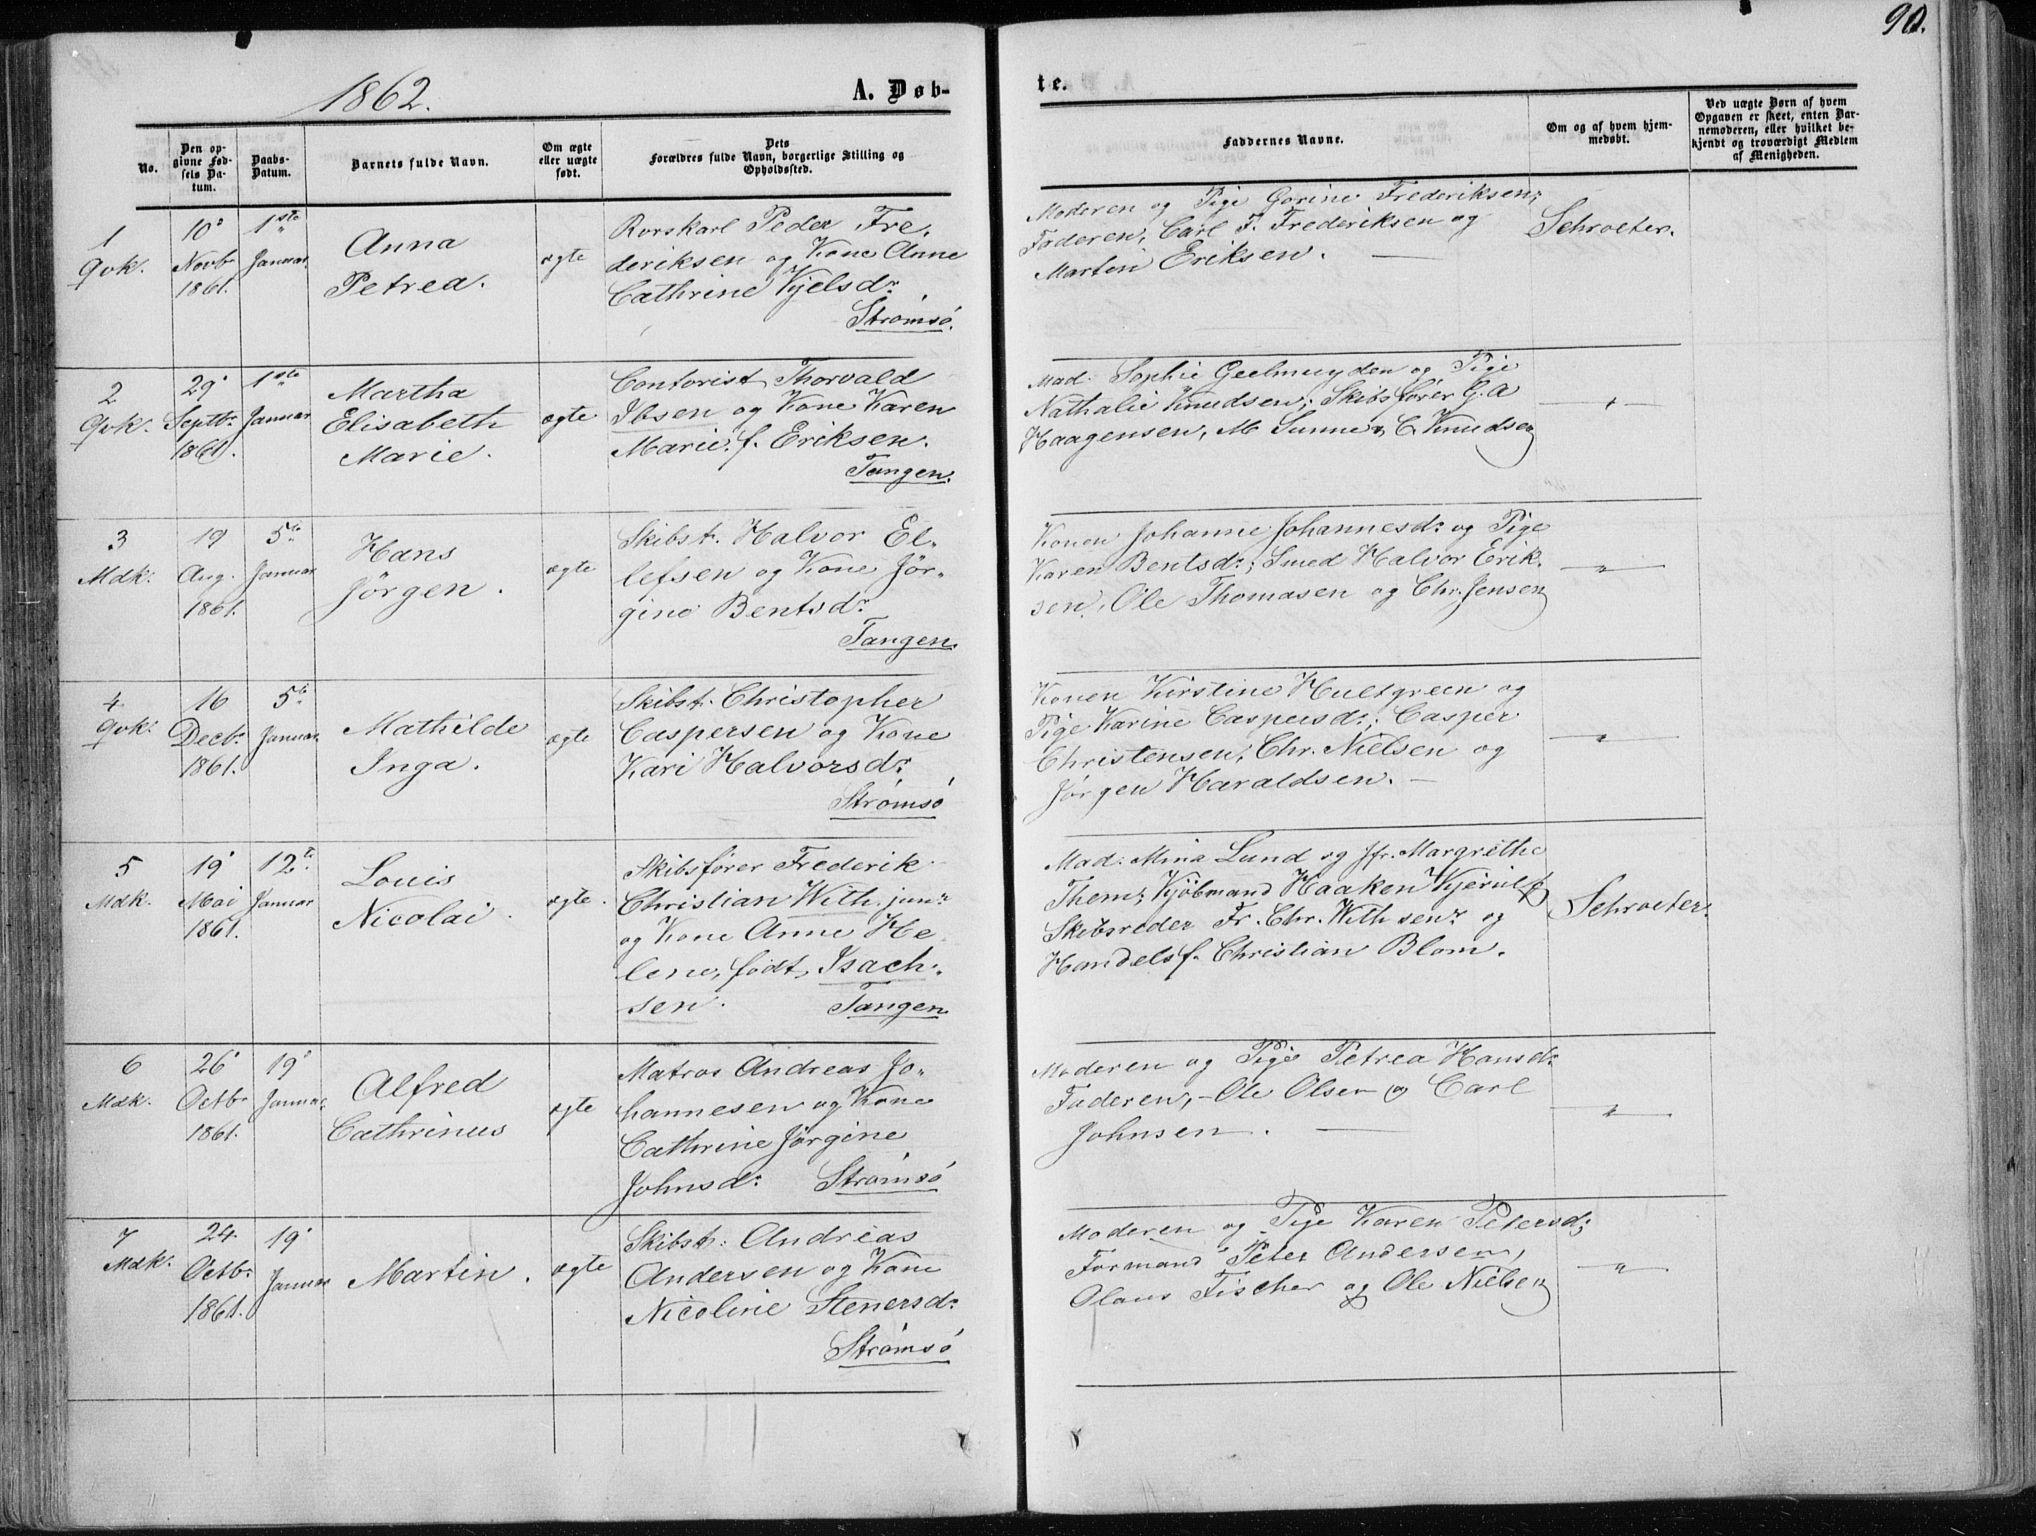 90.
1862.
A. Døb-
te.
No.
Den op-
givne Fød-
sels Da-
tum.
Daabs-
Datum.
Barnets fulde Navn.
Om ægte
eller uægte
født.
Dets
Forældres fulde Navn, borgerlige Stilling og
Opholdssted.
Faddernes Navne.
Om og af hvem hjem-
medøbt.
Ved uægte Børn af hvem
Opgaven er skeet, enten Bar-
nemoderen, eller hvilket be-
kjendt og troværdigt Medlem
af Menigheden.
1
Qvk.
10'
Novbr
1861.
1ste
Januar.
Anna
Petrea.
ægte
Rorskarl Peder Fre-
deriksen og Kone Anne
Cathrine Kjelsdr.
Strømsö.
Moderen og Pige Gorine Frederiksen;
Faderen, Carl F. Frederiksen og
Martin Eriksen. —
Schroeter.
2
Qvk.
29'
Septbr.
1861.
1ste
Januar
Martha
Elisabeth
Marie.
ægte
Contorist Thorvald
Ibsen og Kone Karen
Marie f. Eriksen.
Tangen.
Mad. Sophie Geelmuyden og Pige
Nathalie Knudsen; Skibsfører G. A
Haagensen, M Sunne & C. Knudsen
— " —
3
Mdk.
19
Aug.
1861.
5te
Januar
Hans
Jørgen.
ægte
Skibst. Halvor El-
lefsen og Kone Jør-
gine Bentsdr.
Tangen.
Konen Johanne Johannesdr. og Pige
Karen Bentsdr.; Smed Halvor Erik-
sen, Ole Thomasen og Chr. Jensen
— " —
4
Qvk.
16
Decbr.
1861.
5te
Januar.
Mathilde
Inga.
ægte
Skibst. Christopher
Caspersen og Kone
Kari Halvorsdr.
Strömsö
Konen Kirstine Hultgreen og
Pige Karine Caspersdr.; Casper
Christensen, Chr. Nielsen og
Jørgen Haraldsen. —
— " —
5
Mdk.
19'
Mai
1861.
12te
Januar
Louis
Nicolai.
ægte.
Skibsfører Frederik
Christian With junr
og Kone Anne He-
lene, født Isach-
sen. Tangen
Mad. Mina Lund og Jfr. Margrethe
Them; Kjöbmand Haaken Kjerulf,
Skibsreder Fr. Chr. With senr og
Handelsf. Christian Blom.
Schroeter.
6
Mdk.
26'
Octbr
1861.
19'
Januar.
Alfred
Cathrinus
ægte
Matros Andreas Jo-
hannesen og Kone
Cathrine Jörgine
Johnsdr. Strömsö
Moderen og Pige Petrea Hansdr.
Faderen, Ole Olsen og Carl
Johnsen. —
— " —
7
Mdk.
24.
Octbr.
1861.
19'
Januar
Martin.
ægte
Skibst. Andreas
Andersen og Kone
Nicoline Stenersdr.
Strömsö
Moderen og Pige Karen Petersd;
Formand Peter Andersen,
Olaus Fischer og Ole Nielsen
— " —